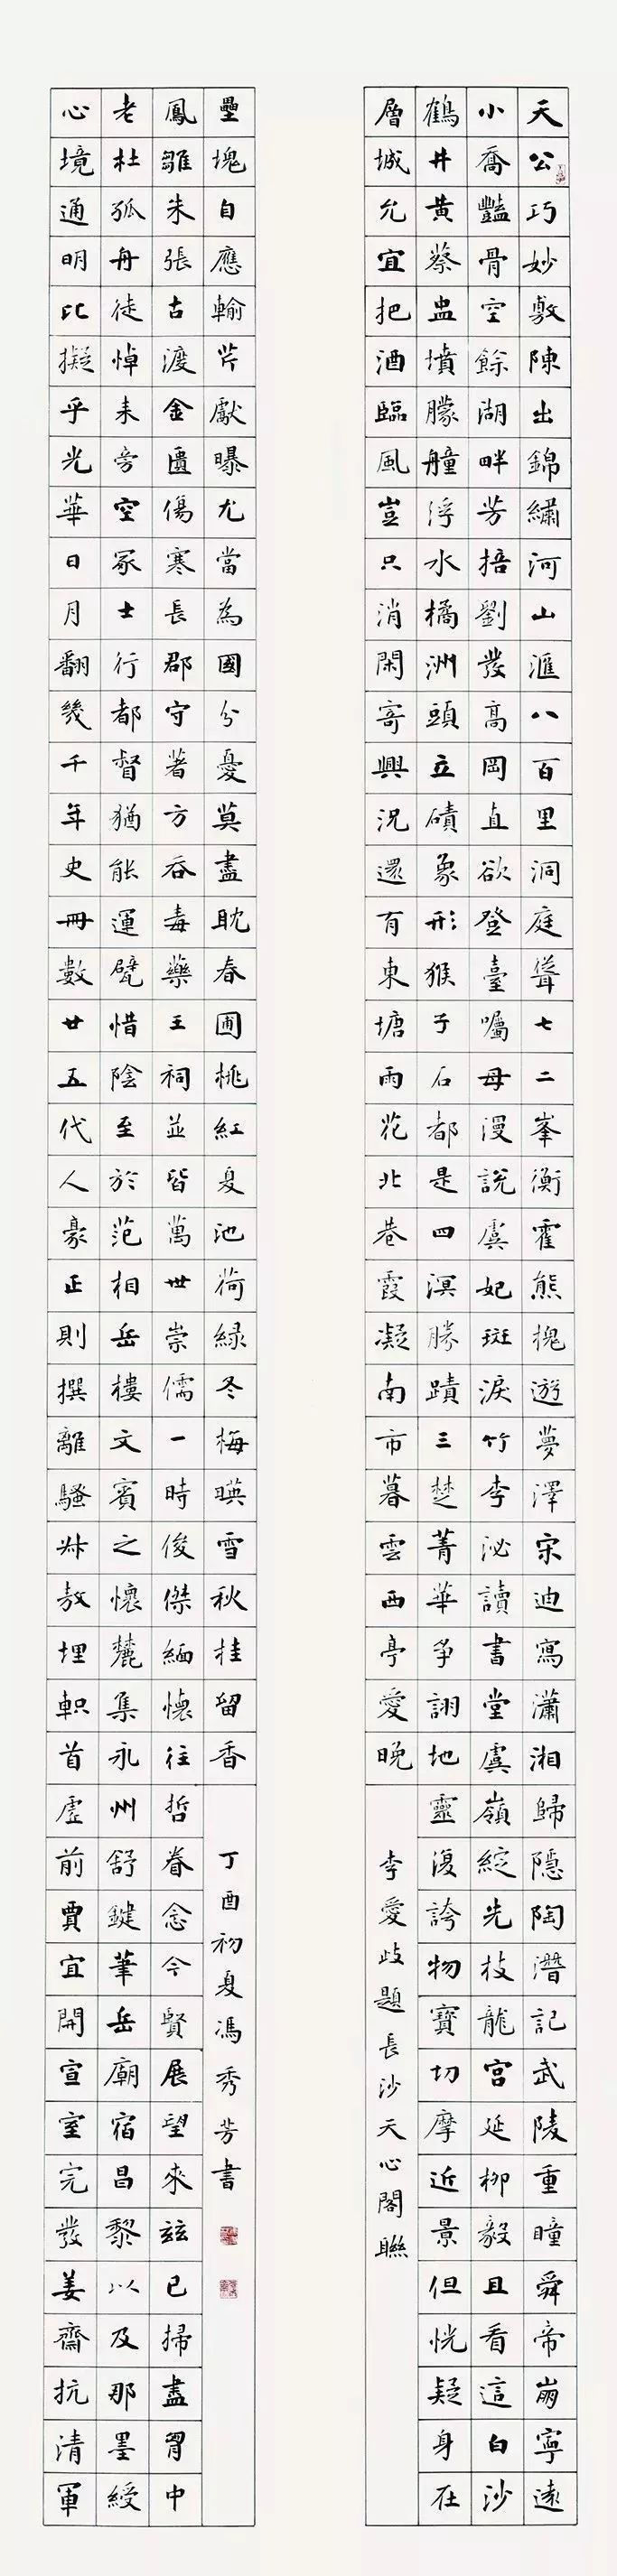 天公巧妙敷陳出錦繡河山滙八百里洞庭聳七二峯衡霍熊槐遊夢澤宋迪寫瀟湘歸隱陶潛記武陵重瞳舜帝崩寧遠
小喬豔骨空餘湖畔芳掊劉發高岡直欲登臺囑母漫說虞妃斑淚竹李泌讀書堂虞嶺綻先枝龍宮延柳毅且看這白沙
鶴井黃蔡盅墳朦艟浮水橘洲頭立磧象形猴子石都是四溟勝蹟三楚菁華爭詡地靈復誇物寶切摩近景但恍疑身在
層城允宜把酒臨風豈只消閑寄興況還有東塘雨花北巷霞凝南市暮雲西亭愛晚
李愛歧題長沙天心閣聯
心境通明比擬乎光華日月翻幾千年史冊數廿五代人豪正則撰離騷叔敖埋軹首虛前賈宜開宣室完發姜齋抗清軍
老杜孤舟徒悼耒旁空冢士行都督猶能運甓惜陰至於范相岳樓文賓之懷麓集永州舒鍵筆岳廟宿昌黎以及那墨綬
鳳雛朱張古渡金匱傷寒長郡守著方吞毒藥王祠並皆萬世崇儒一時俊傑緬懷往哲眷念今賢展望來茲已掃盡胷中
壘塊自應輸芹獻曝尤當為國分憂莫盡耽春圃桃紅夏池荷綠冬梅暎雪秋桂留香
丁酉初夏馮秀芳書